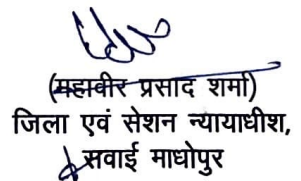 (महावीर प्रसाद शर्मा)
जिला एवं सेशन न्यायाधीश,
सवाई माधोपुर